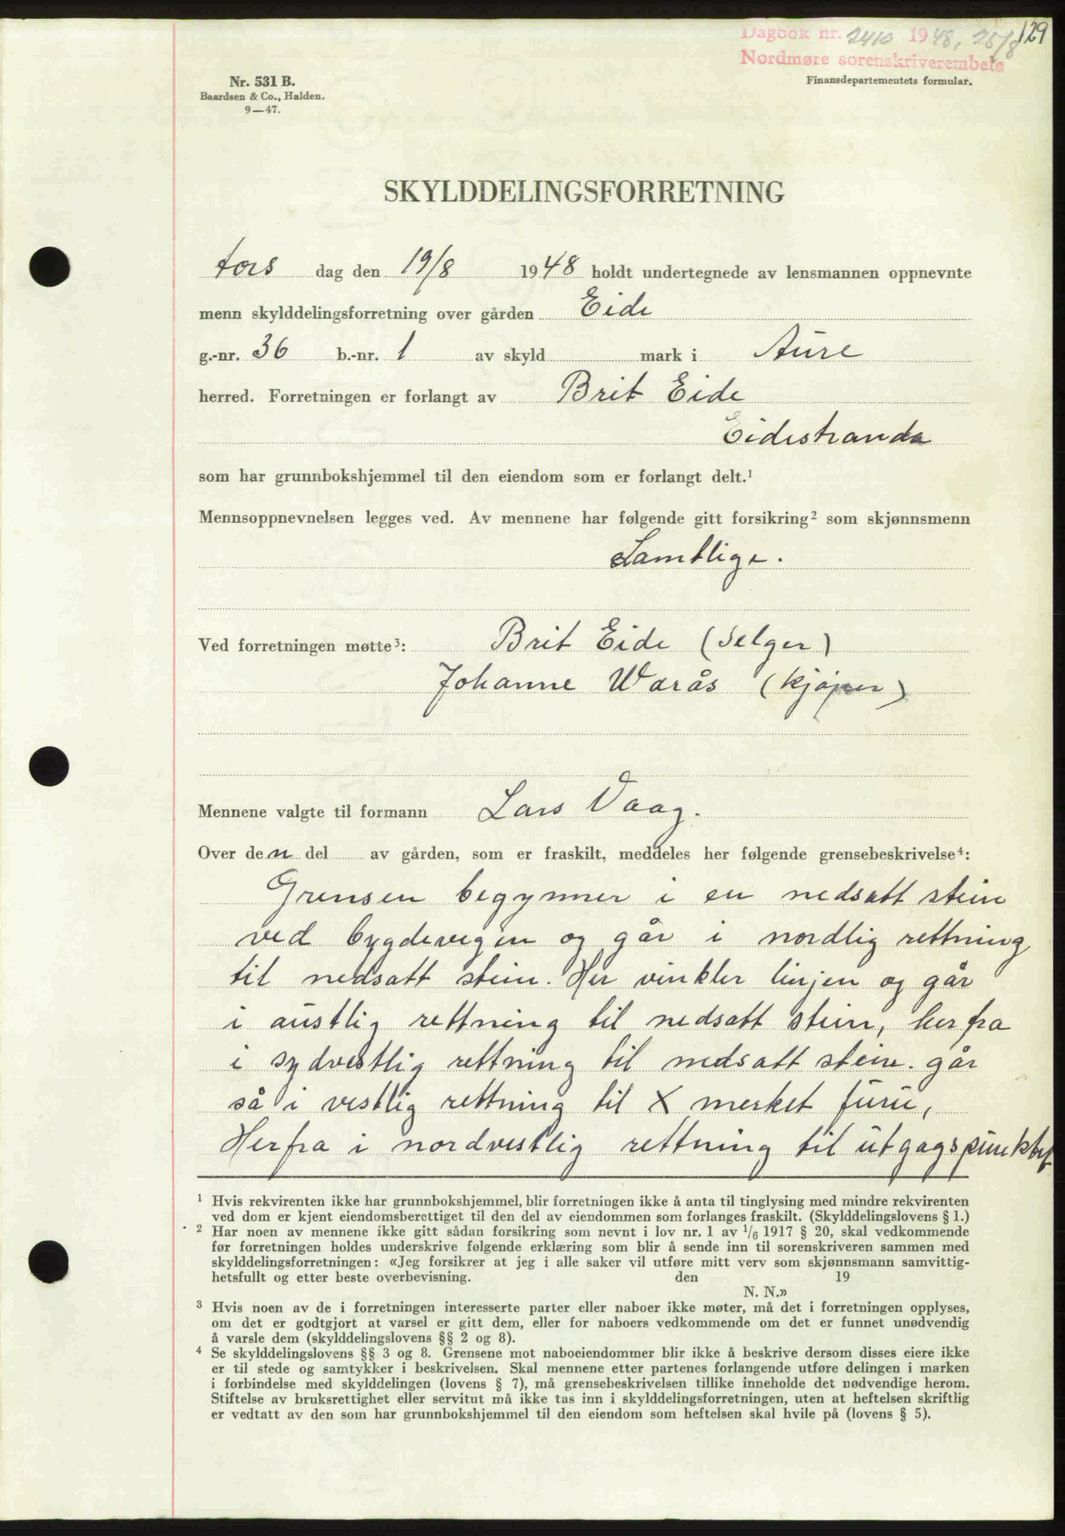 129
Dagbok nr. 2410 1948, 25/8
Nordmøre sorenskriverembete
Nr. 531 B.
Baardsen & Co., Halden.
9—47.
Finansdepartementets formular.
SKYLDDELINGSFORRETNING
tors dag den 19/8 1948 holdt undertegnede av lensmannen oppnevnte
menn skylddelingsforretning over gården Eide
g.-nr. 36 b.-nr. 1 av skyld mark i Aure
herred. Forretningen er forlangt av Brit Eide
Eidestranda
som har grunnbokshjemmel til den eiendom som er forlangt delt.¹
Mennsoppnevnelsen legges ved. Av mennene har følgende gitt forsikring² som skjønnsmenn
Samtlige.
Ved forretningen møtte³: Brit Eide (Selger)
Johanne Warås (kjøper)
Mennene valgte til formann Lars Vaag.
Over den del av gården, som er fraskilt, meddeles her følgende grensebeskrivelse⁴:
Grensen begynner i en nedsatt stein
ved bygdevegen og går i nordlig rettning
til nedsatt stein. Her vinkler linjen og går
i austlig rettning til nedsatt stein, herfra
i sydvestlig rettning til nedsatt stein. går
så i vestlig rettning til X merket furu,
Herfra i nordvestlig rettning til utgagspunktet
¹ Hvis rekvirenten ikke har grunnbokshjemmel, blir forretningen ikke å anta til tinglysing med mindre rekvirenten
ved dom er kjent eiendomsberettiget til den del av eiendommen som forlanges fraskilt. (Skylddelingslovens § 1.)
² Har noen av mennene ikke gitt sådan forsikring som nevnt i lov nr. 1 av 1/6 1917 § 20, skal vedkommende
før forretningen holdes underskrive følgende erklæring som blir å sende inn til sorenskriveren sammen med
skylddelingsforretningen: «Jeg forsikrer at jeg i alle saker vil utføre mitt verv som skjønnsmann samvittig-
hetsfullt og etter beste overbevisning. den 19
N. N.»
³ Hvis noen av de i forretningen interesserte parter eller naboer ikke møter, må det i forretningen opplyses,
om det er godtgjort at varsel er gitt dem, eller for naboers vedkommende om det er funnet unødvendig
å varsle dem (skylddelingslovens §§ 2 og 8).
⁴ Se skylddelingslovens §§ 3 og 8. Grensene mot naboeiendommer blir ikke å beskrive dersom disses eiere ikke
er til stede og samtykker i beskrivelsen. Skal mennene etter partenes forlangende utføre delingen i marken
i forbindelse med skylddelingen (lovens § 7), må grensebeskrivelsen tillike inneholde det nødvendige herom.
Stiftelse av bruksrettighet eller servitut må ikke tas inn i skylddelingsforretningen, uten at heftelsen skriftlig
er vedtatt av den som har grunnbokshjemmel til den eiendom som heftelsen skal hvile på (lovens § 5).